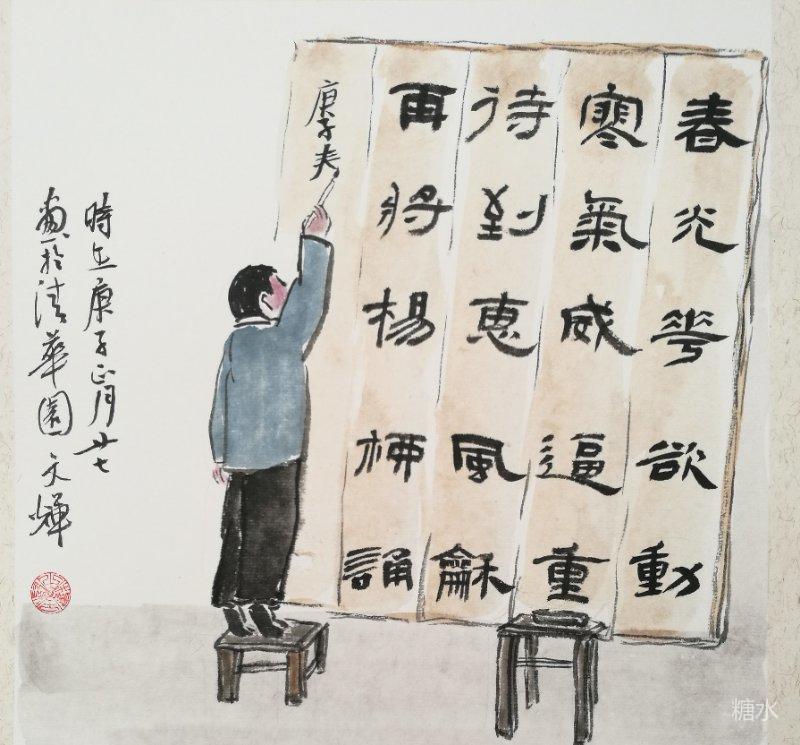 春光華欲動
寒氣威逼重
待到惠風龢
再將楊柳誦
庚子夫
時在庚子正月廿七
畫於清華園文輝
糖水